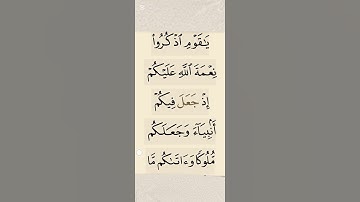 يَٰقَوْمِ ٱذْكُرُوا۟
نِعْمَةَ ٱللَّهِ عَلَيْكُمْ
إِذْ جَعَلَ فِيكُمْ
أَنۢبِيَآءَ وَجَعَلَكُم
مُّلُوكًا وَءَاتَىٰكُم مَّا